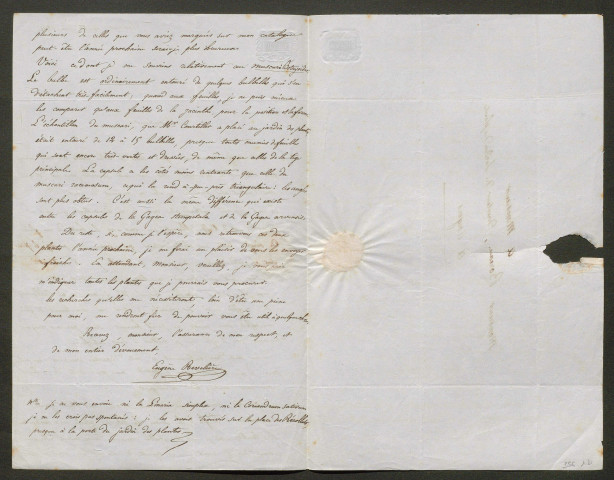 plusieurs de celles que vous aviez marquées sur mon catalogue
peut-être l'année prochaine serai-je plus heureux.
Voici ce dont je me souviens relativement au muscari
Le bulbe est ordinairement entouré de quelques bulbilles qui s'en
détachent très facilement; quand aux feuilles, je ne puis mieux
les comparer qu'aux feuilles de la jacinthe, pour la position et la forme
L'échantillon de muscari, que Mr Courtiller a placé au jardin des plantes
était entouré de 12 à 15 bulbilles, presque toutes munies de feuilles
qui sont encore très vertes et dressées, de même que celles de la tige
principale. La capsule a les côtés moins contractés que celle du
muscari racemosum, ce qui la rend à-peu-près triangulaire: les angles
sont plus obtus. C'est aussi la même différence qui existe
entre les capsules de la Gagea et de la Gagea arvensis.
Du reste, si, comme je l'espère, nous retrouvons ces deux
plantes l'année prochaine, je me ferai un plaisir de vous les envoyer
fraîches. En attendant, Monsieur, veuillez, je vous prie
m'indiquer toutes les plantes que je pourrais vous procurer.
les recherches qu'elles me nécessiteront, loin d'être une peine
pour moi, me rendront fier de pouvoir vous être utile à quelque chose.
Recevez, monsieur, l'assurance de mon respect, et
de mon entier dévouement.
Eugène Revelière
Nta je ne vous envoie ni la Linaria simplex, ni le Coriandrum sativum
je ne les crois pas spontanés: je les avais trouvés sur la place des Récollets
presque à la porte du jardin des plantes.